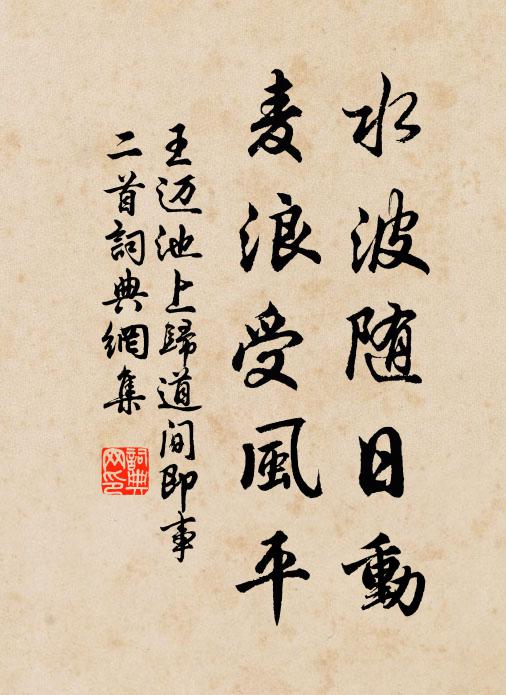 水波随日動
麦浪受風平
王迈池上歸道间即事
二首詞典網集
詞典網印